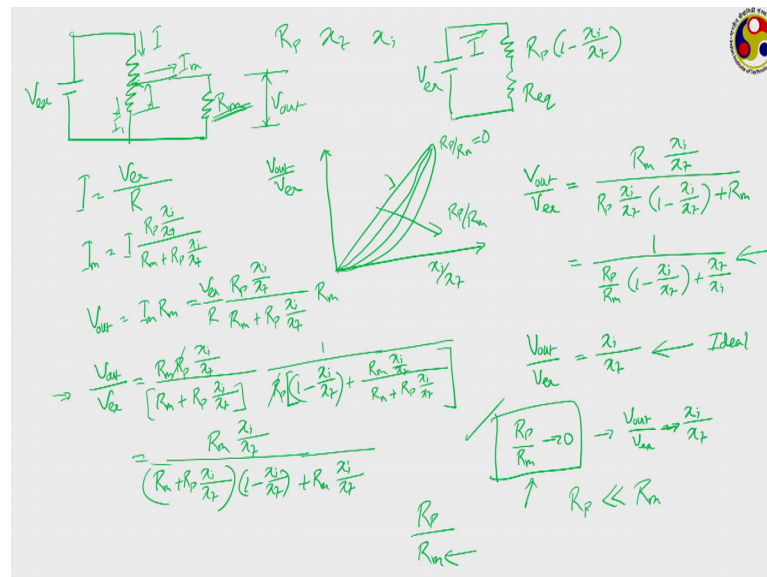 I
I_m
V_ex
I_1
I
R_m
V_out
R_p x_t x_i
I
V_ex
R_p (1 - x_i/x_t)
R_eq
V_out/V_ex
R_p/R_m = 0
R_p/R_m
x_i/x_t
I = V_ex/R
I_m = I (R_p x_i/x_t)/(R_m + R_p x_i/x_t)
V_out = I_m R_m = V_ex/R (R_p x_i/x_t)/(R_m + R_p x_i/x_t) R_m
→ V_out/V_ex = (R_m R_p x_i/x_t)/[R_m + R_p x_i/x_t] 1/(R_p[(1 - x_i/x_t) + (R_m x_i/x_t)/(R_m + R_p x_i/x_t)])
= (R_m x_i/x_t)/((R_m + R_p x_i/x_t)(1 - x_i/x_t) + R_m x_i/x_t)
V_out/V_ex = (R_m x_i/x_t)/(R_p x_i/x_t (1 - x_i/x_t) + R_m)
= 1/(R_p/R_m (1 - x_i/x_t) + x_t/x_i) ←
V_out/V_ex = x_i/x_t ← Ideal
R_p/R_m → 0 → V_out/V_ex → x_i/x_t
R_p << R_m
R_p/R_m ←